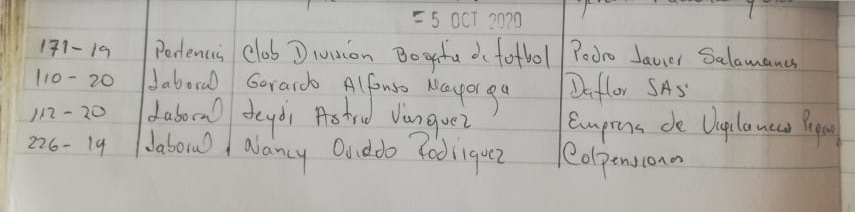 = 5 OCT 2020
171-19 Pertencia Club División Bogota de futbol Pedro Javier Salamanca
110-20 Laboral Gerardo Alfonso Mayorga Daflor SAS
112-20 Laboral Leydi Astrid Vasquez Empresa de Vigilancia
226-19 Laboral Nancy Oviedo Rodriguez Colpensiones